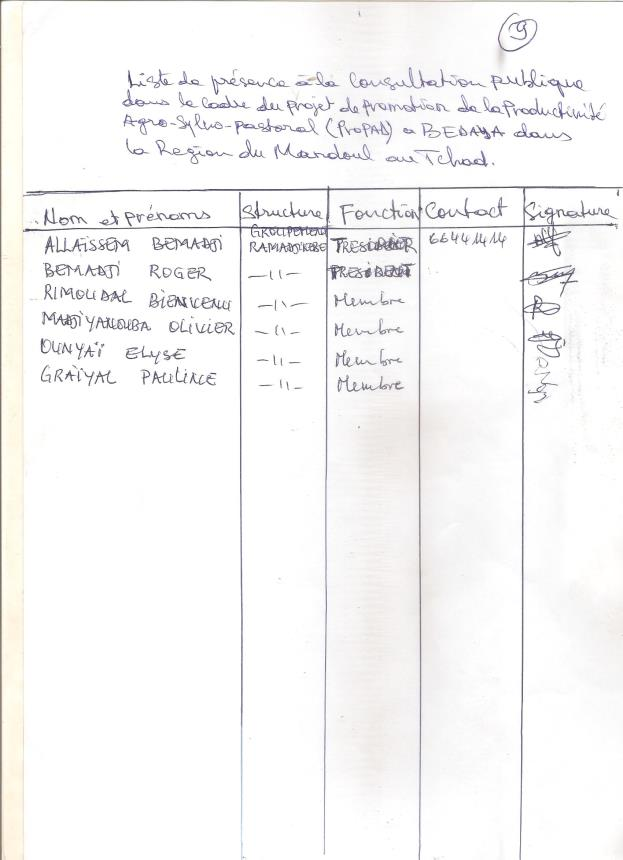 9
Liste de présence à la Consultation publique
dans le cadre du projet de promotion de la Productivité
Agro-Sylvo-pastoral (ProPAD) a BEDAYA dans
la Region du Mandoul au Tchad.
Nom et prénoms Structure Fonction Contact Signature
ALLAÏSSEM BEMADJI GROUPEMENT 66441414
BEMADJI ROGER -11- PRESIDENT
RIMOUDAL BIENVENU -11- Membre
MADJIYANOUBA OLIVIER -11- Membre
OUNYAÏ ELYSE -11- Membre
GRAÏYAL PAULINE -11- Membre